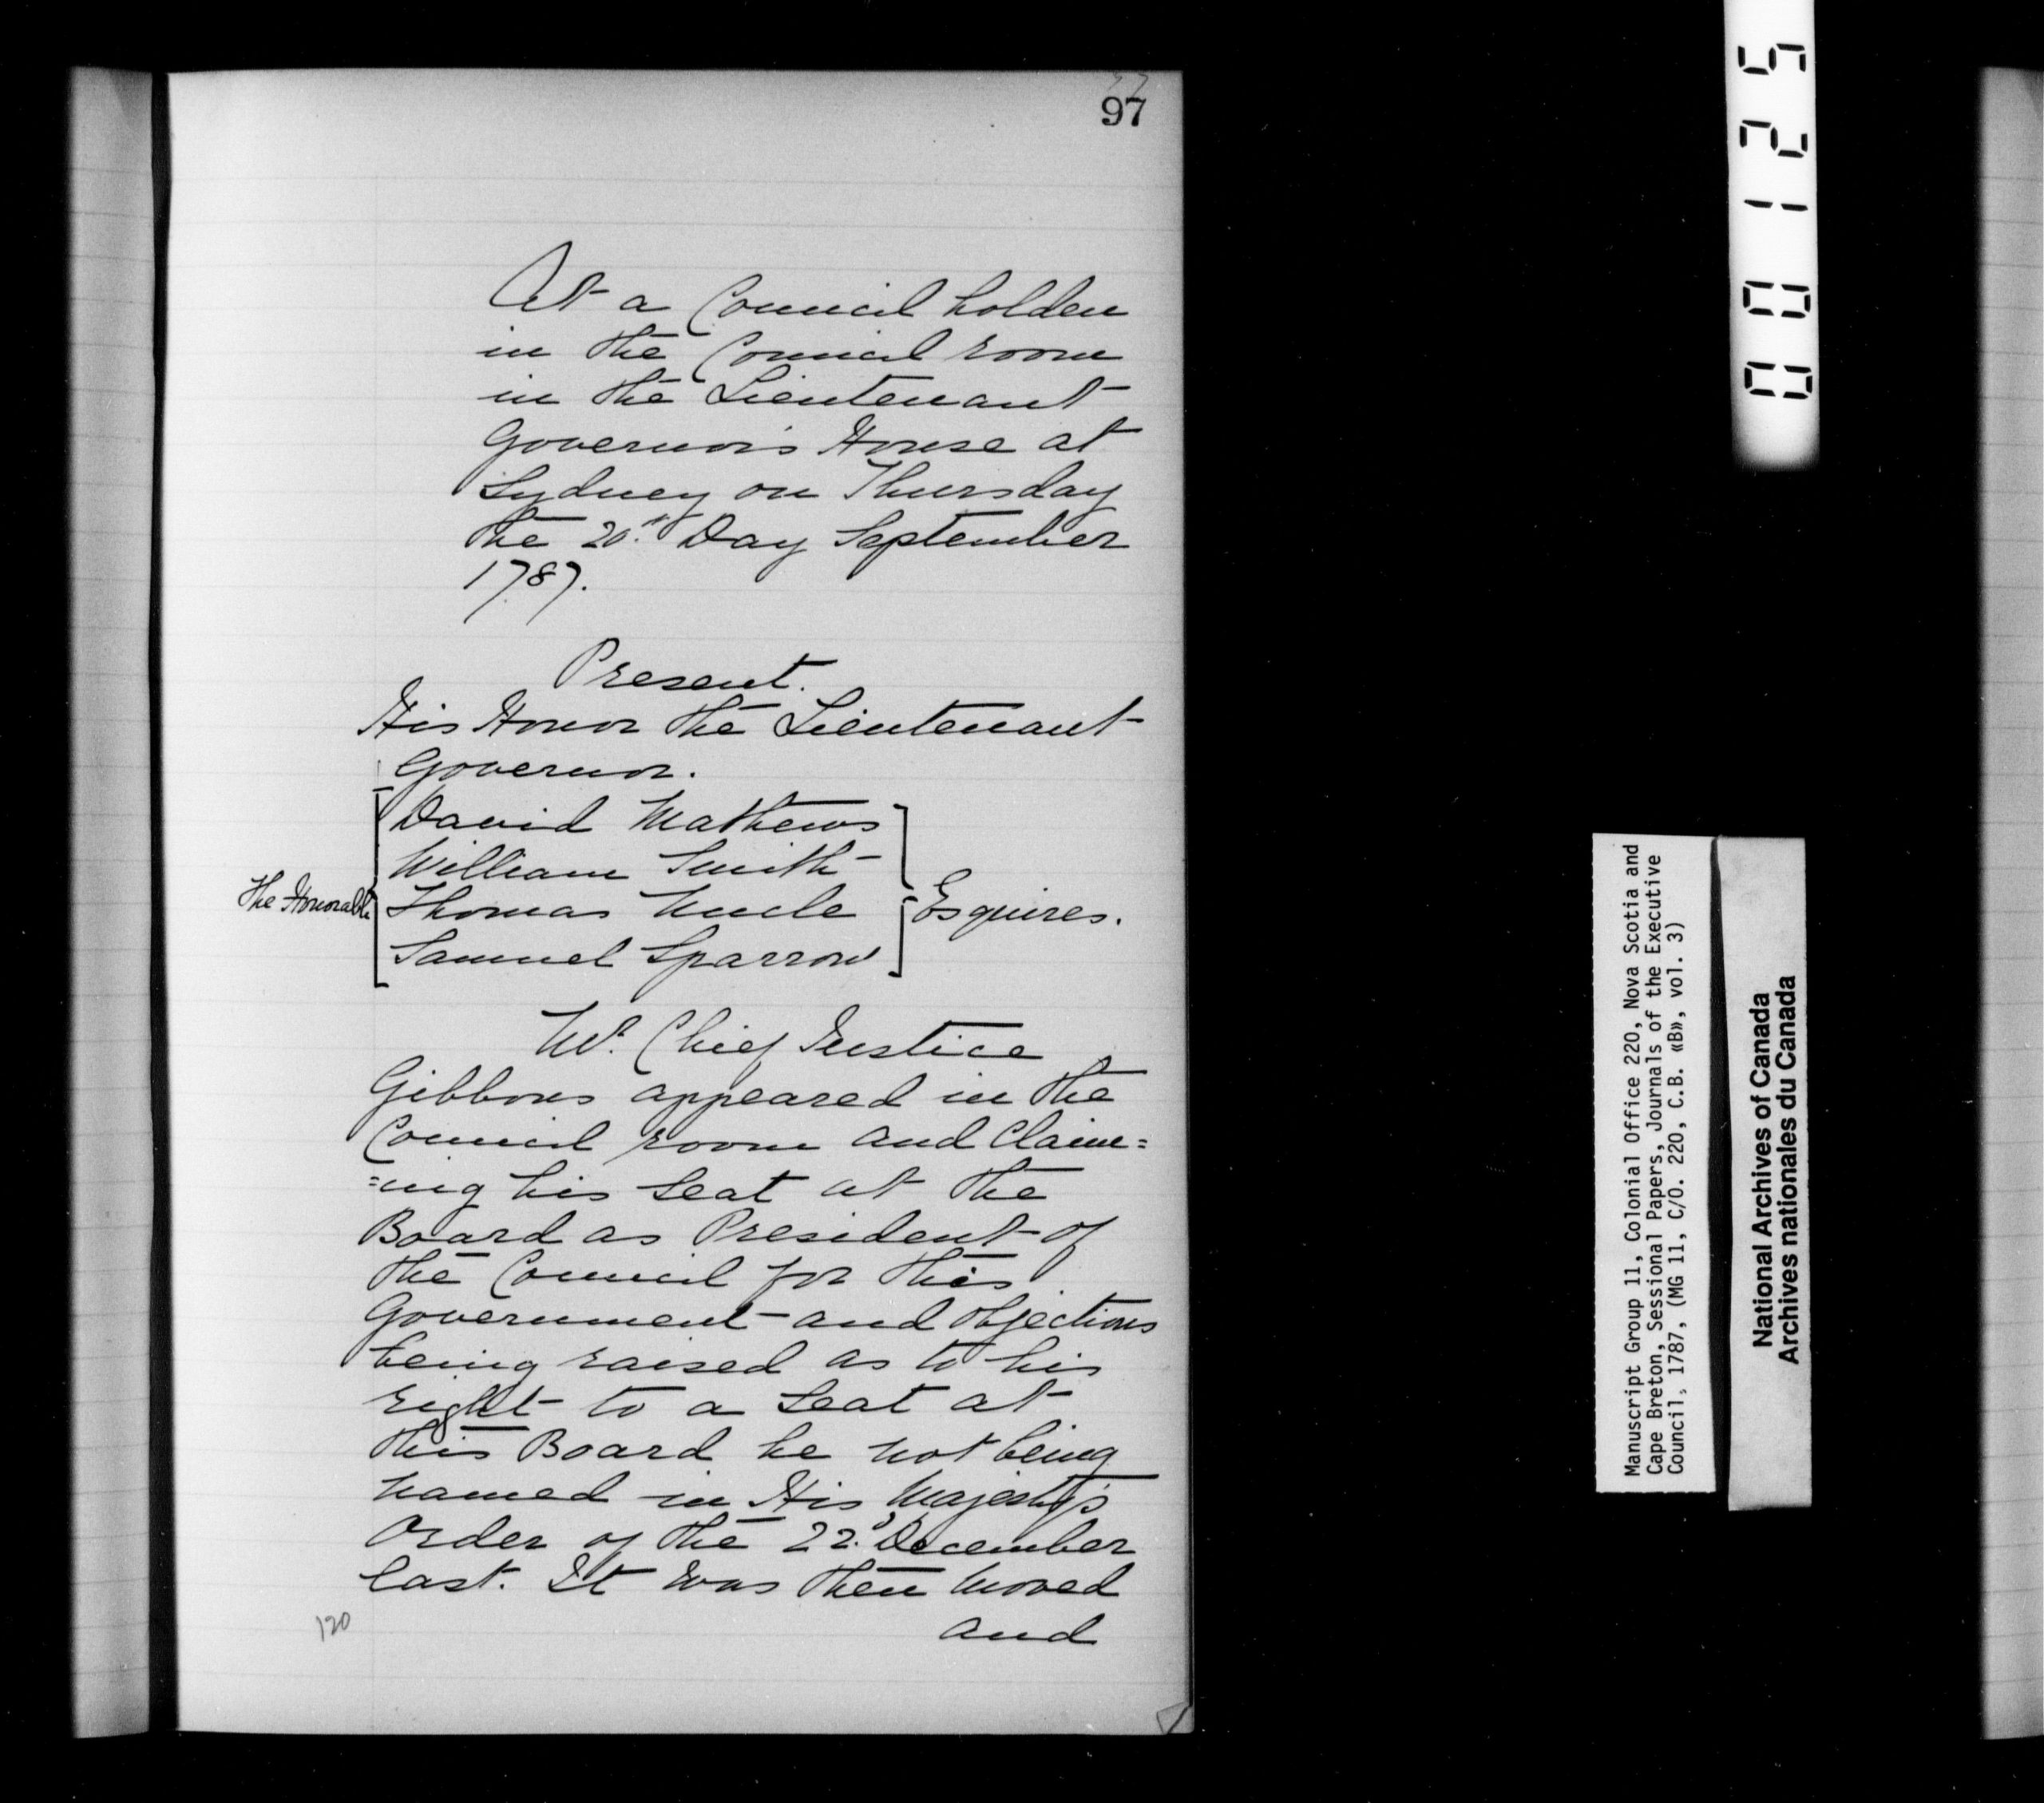 97
At a Council holden
in the Council room
in the Lieutenant
Governor's House at
Sydney on Thursday
the 20th Day September
1787.
Present.
His Honor the Lieutenant
Governor.
David Mathews
William Smith
The Honorable Thomas Uncle Esquires.
Samuel Sparrow
Mr. Chief Justice
Gibbons appeared in the
Council room and Claim=
=ing his Seat at the
Board as President of
the Council for this
Government and objections
being raised as to his
right to a Seat at
this Board he not being
named in His Majesty's
Order of the 22d December
last. It was then moved
and
120
00125
Manuscript Group 11, Colonial Office 220, Nova Scotia and
Cape Breton, Sessional Papers, Journals of the Executive
Council, 1787, (MG 11, C/O. 220, C.B. «B», vol. 3)
National Archives of Canada
Archives nationales du Canada